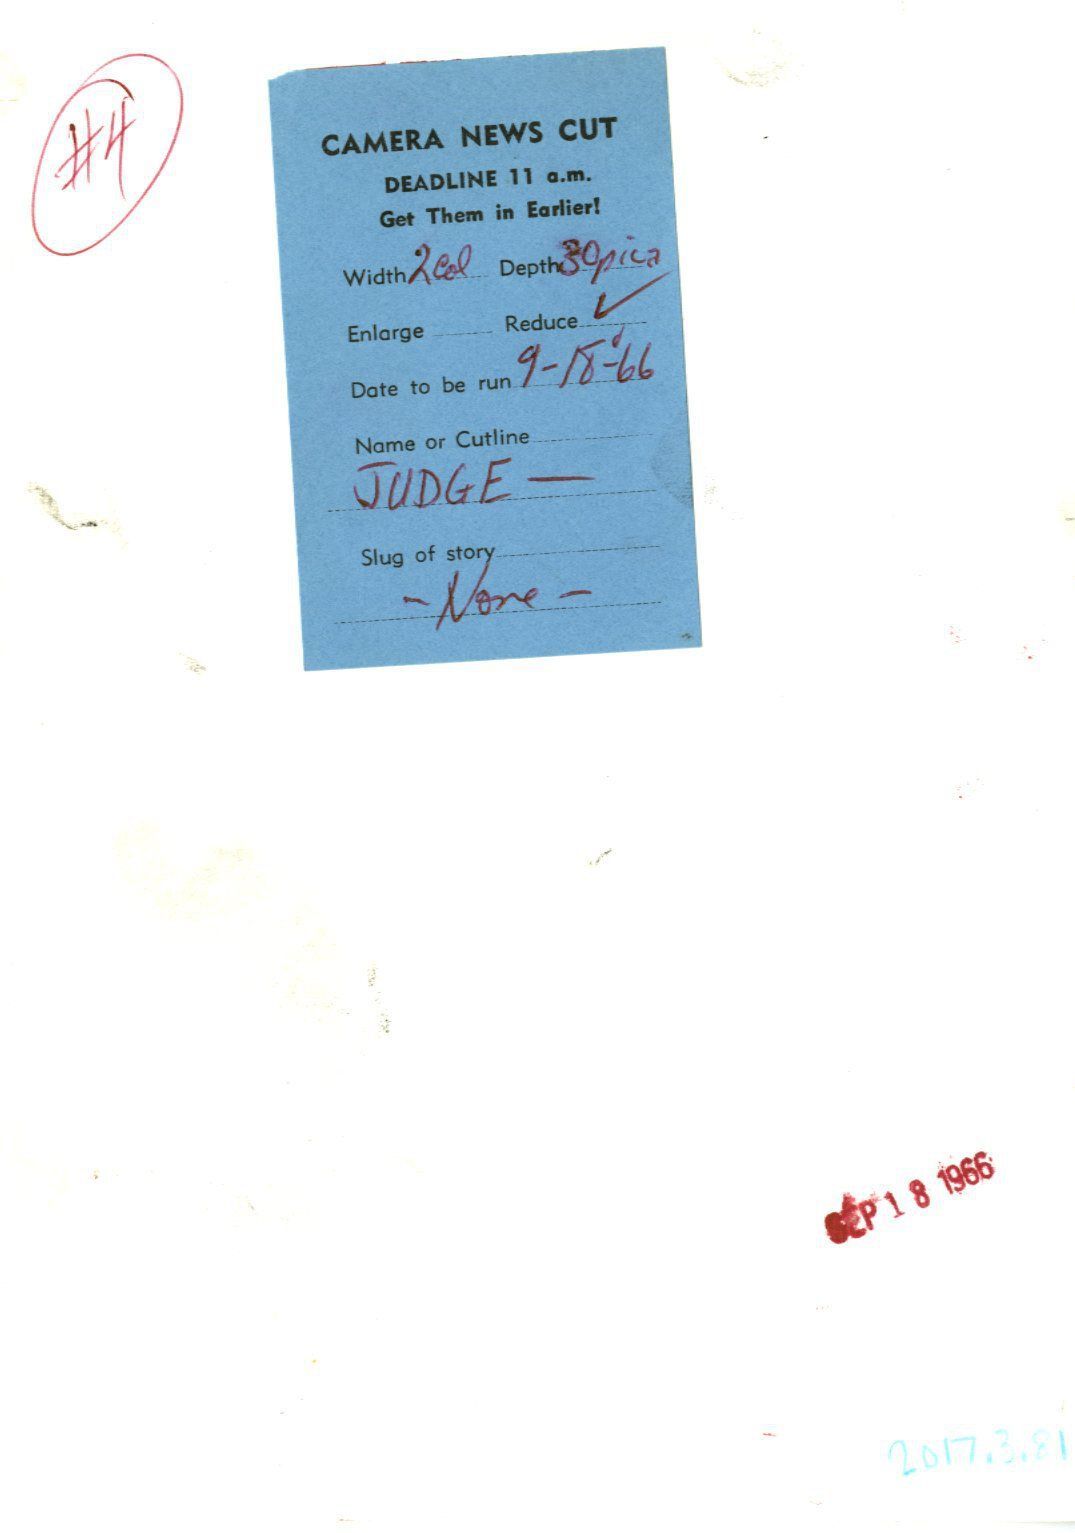 #4
CAMERA NEWS CUT
DEADLINE 11 a.m.
Get Them in Earlier!
Width 2 Col Depth 30 pica
Enlarge Reduce ✓
Date to be run 9-18-'66
Name or Cutline
JUDGE —
Slug of story
- None -
SEP 18 1966
2017.3.81